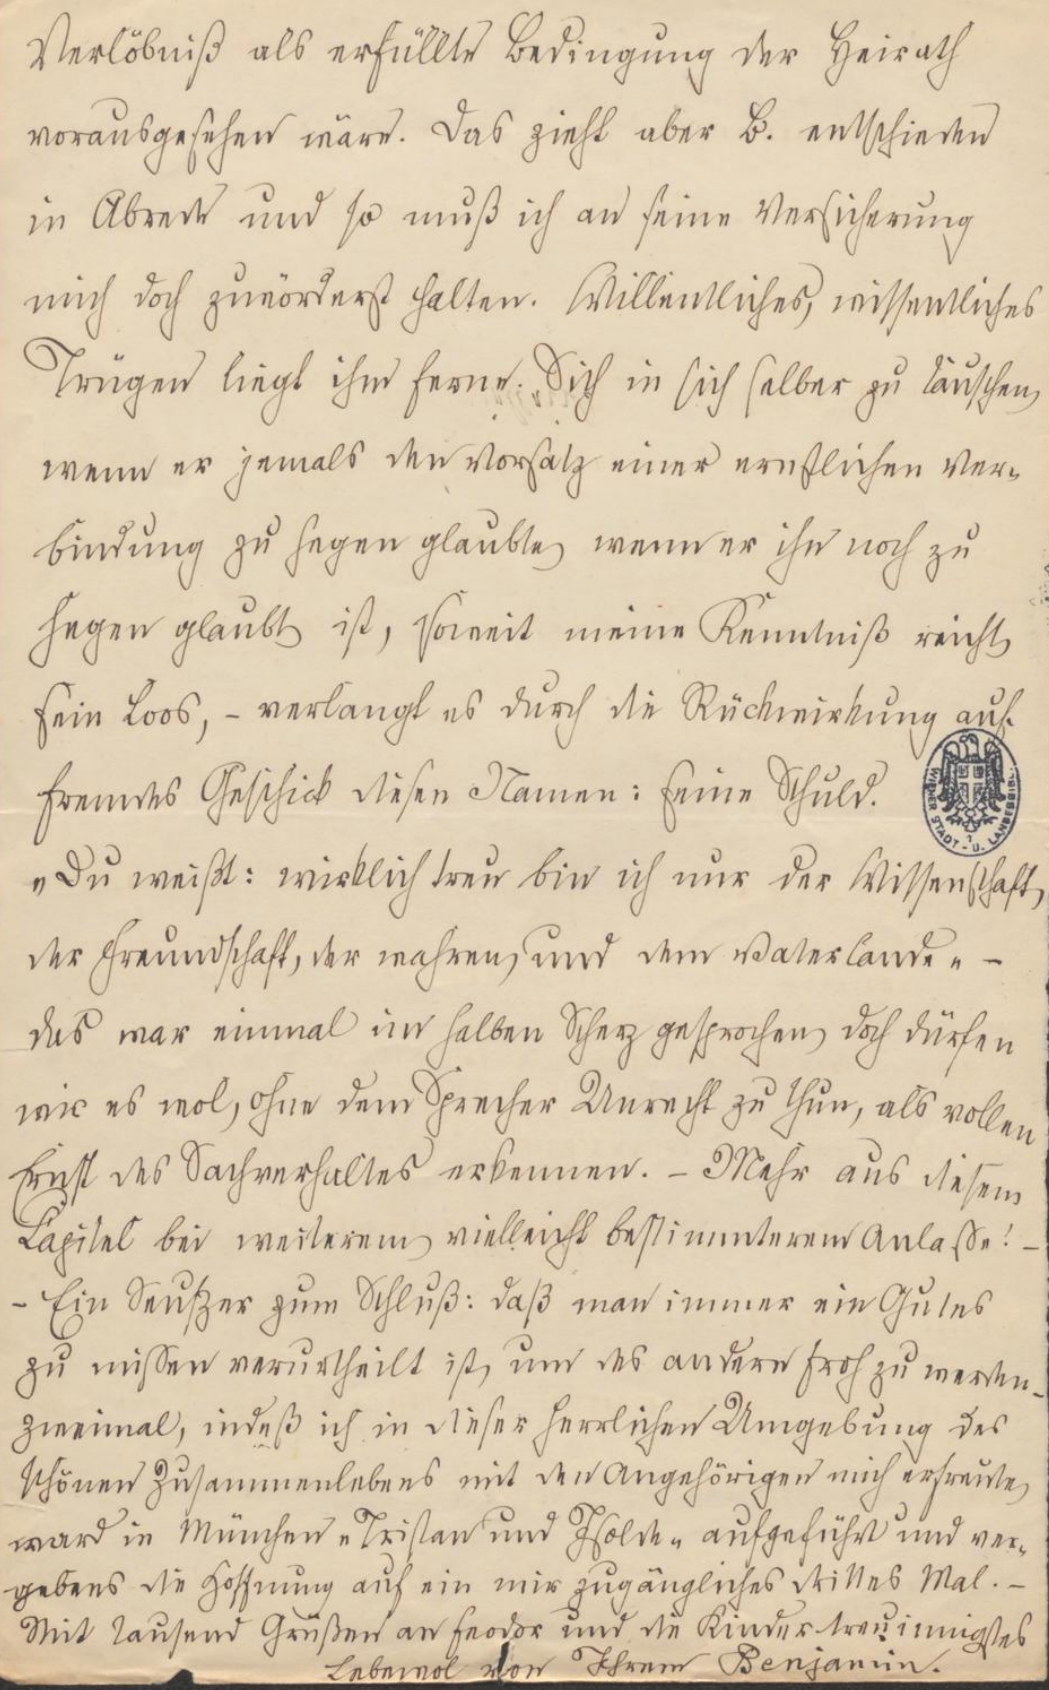 Verlöbniß als erfüllte Bedingung der Heirath
vorausgesehen wäre. Das zieht aber B. entschieden
in Abrede und so muß ich an seine Versicherung
mich doch zuvörderst halten. Willentliches, wissentliches
Trügen liegt ihm ferne. Sich in sich selber zu täuschen,
wenn er jemals den Vorsatz einer ernstlichen Ver-
bindung zu hegen glaubte, wenn er ihn noch zu
hegen glaubt, ist, soweit meine Kenntniß reicht,
sein Loos, – verlangt es durch die Rückwirkung auf
fremdes Geschick diesen Namen: seine Schuld.
„Du weißt: wirklich treu bin ich nur der Wissenschaft,
der Freundschaft, der wahren, und dem Vaterlande" –
das war einmal im halben Scherz gesprochen, doch dürfen
wir es wol, ohne dem Sprecher Unrecht zu thun, als vollen
Ernst des Sachverhaltes erkennen. – Mehr aus diesem
Capitel bei weiterem, vielleicht bestimmterem Anlasse! –
– Ein Seufzer zum Schluß: daß man immer ein Gutes
zu missen verurtheilt ist, um des andern froh zu werden –
zweimal, indeß ich in dieser herrlichen Umgebung des
schönen Zusammenlebens mit den Angehörigen mich erfreute,
ward in München „Tristan und Isolde" aufgeführt und ver-
gebens die Hoffnung auf ein mir zugängliches drittes Mal. –
Mit tausend Grüßen an Feodor und die Kinder treuinnigstes
Lebewol von Ihrem Benjamin.
WIENER STADT- U. LANDESBIBL.